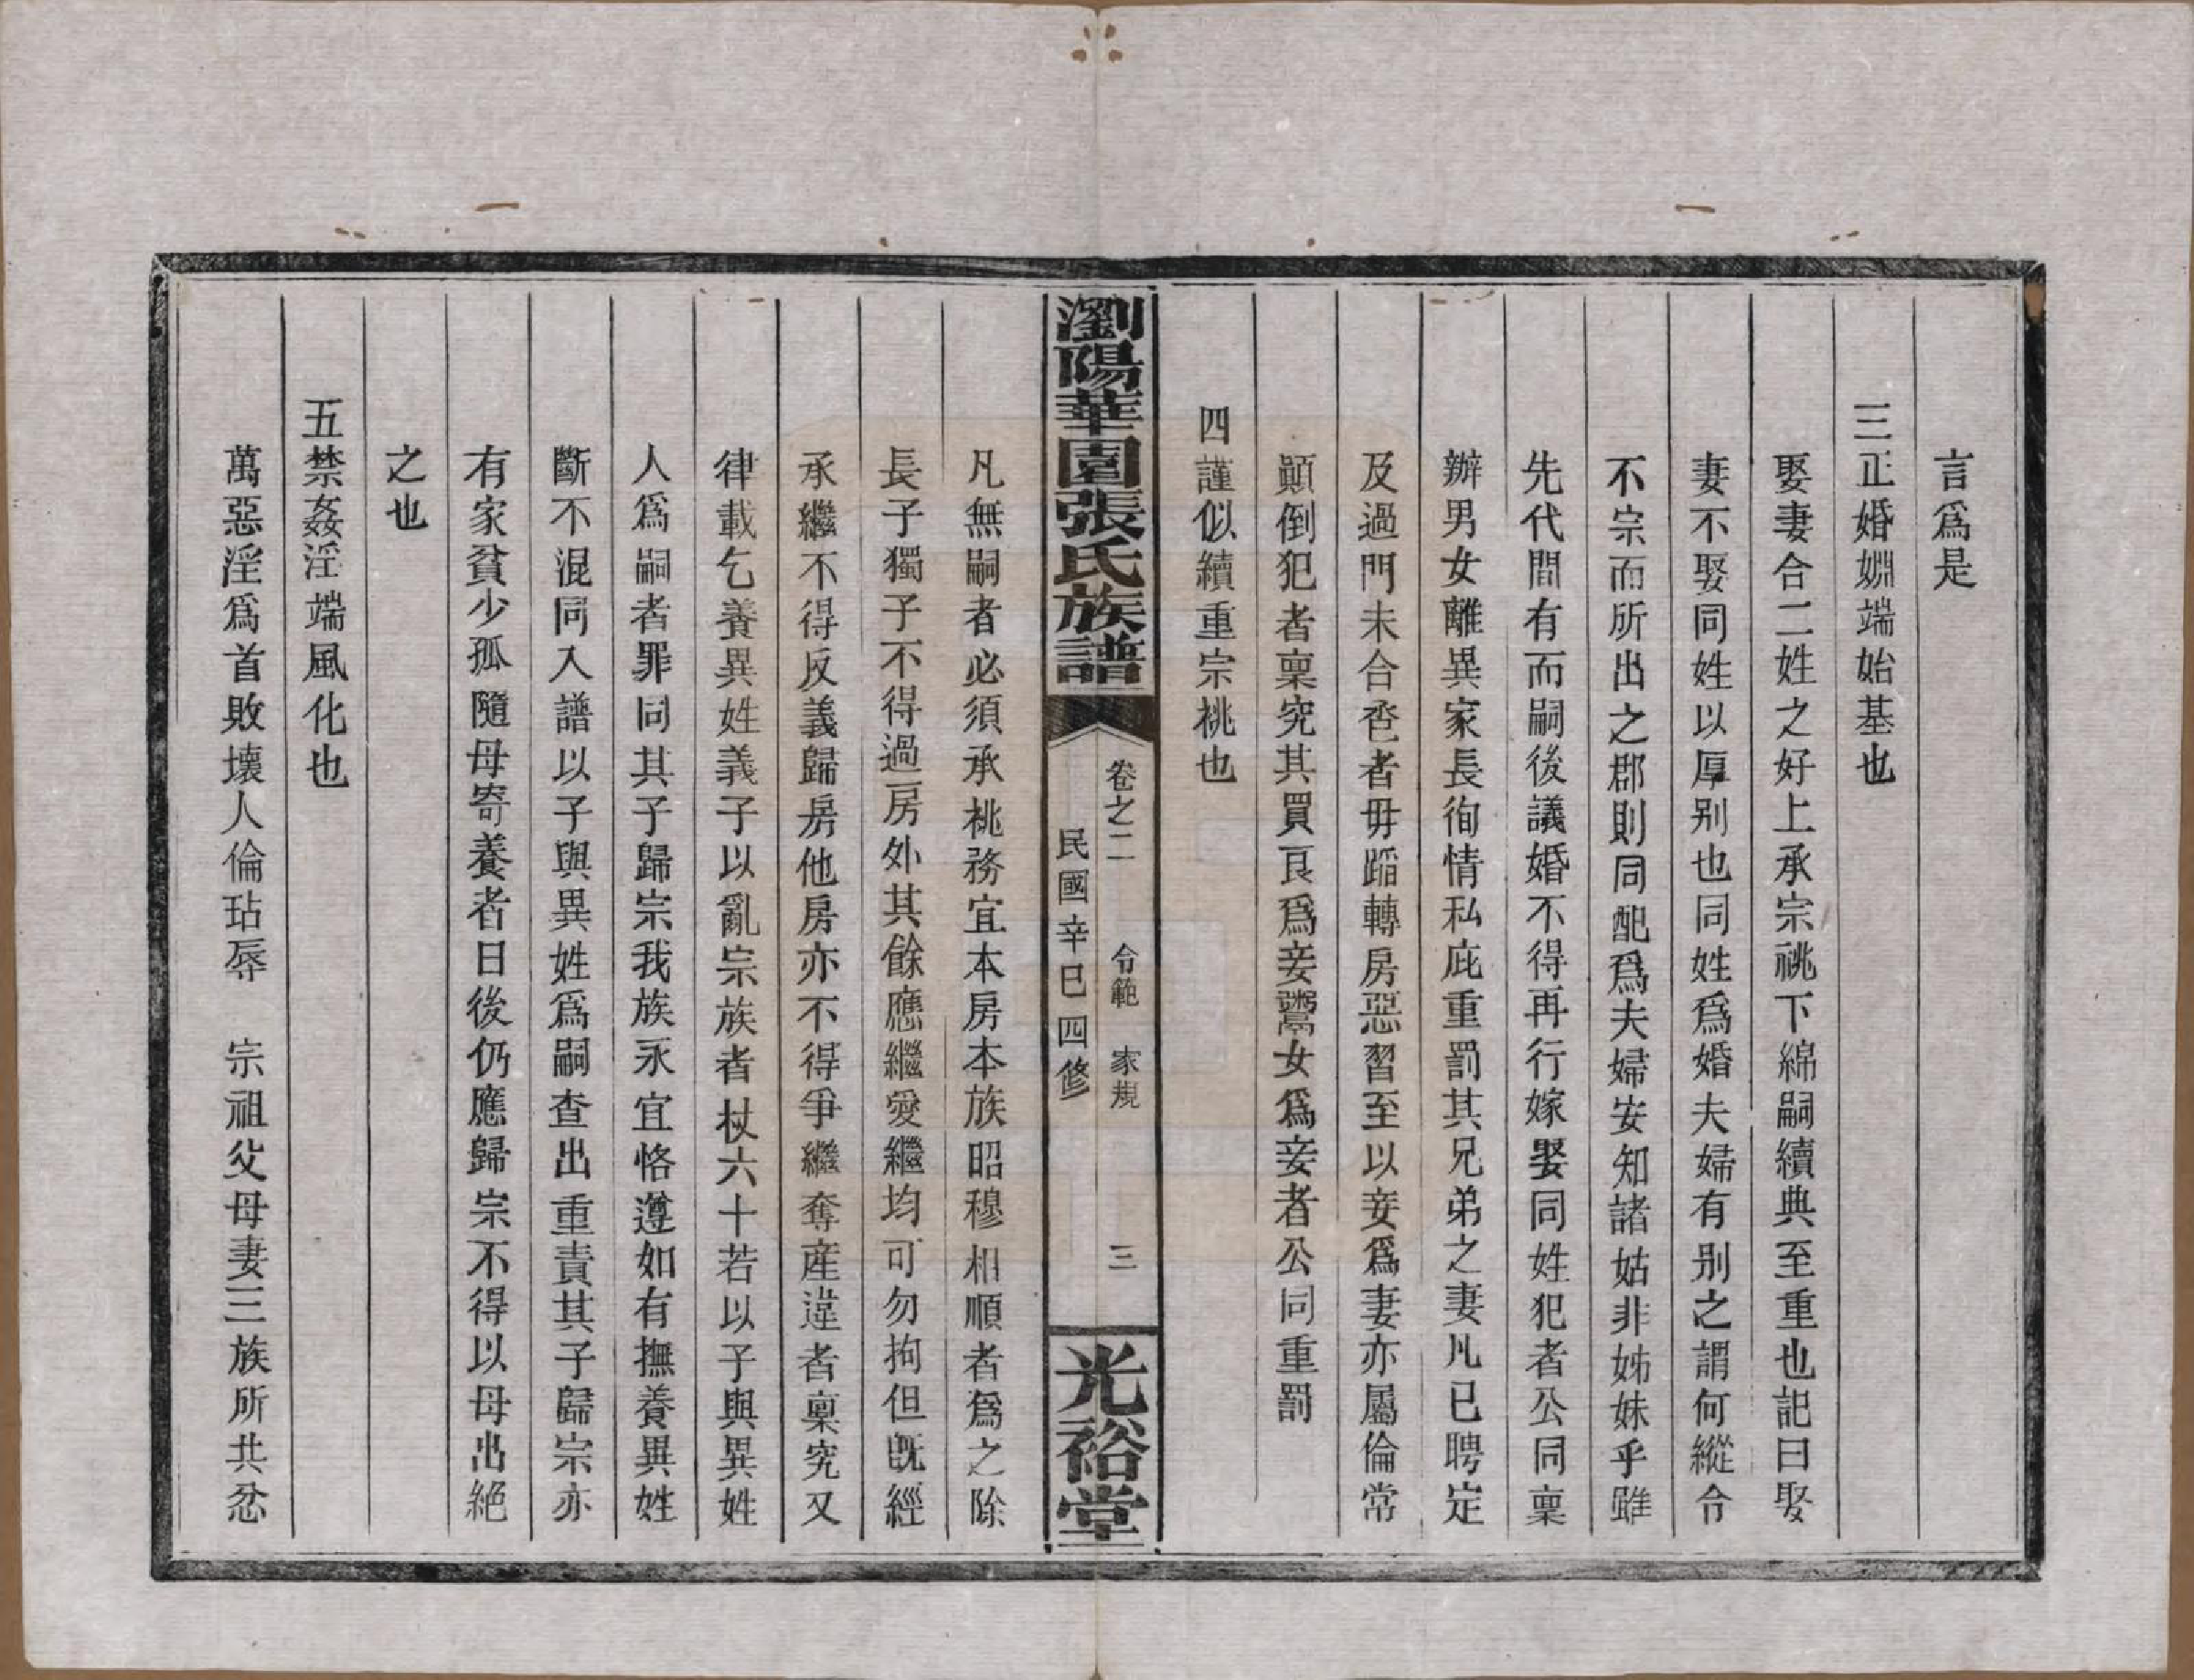 言爲是
三正婚姻端始基也
娶妻合二姓之好上承宗祧下綿嗣續典至重也記曰娶
妻不娶同姓以厚别也同姓爲婚夫婦有别之謂何縱令
不宗而所出之郡則同配爲夫婦安知諸姑非姊妹乎雖
先代間有而嗣後議婚不得再行嫁娶同姓犯者公同稟
辦男女離異家長徇情私庇重罰其兄弟之妻凡已聘定
及過門未合卺者毋蹈轉房惡習至以妾爲妻亦屬倫常
顚倒犯者稟究其買良爲妾鬻女爲妾者公同重罰
四謹似續重宗桃也
瀏陽華園張氏族譜
卷之二 令範 家規 三
民國辛巳四修
光裕堂
凡無嗣者必須承桃務宜本房本族昭穆相順者爲之除
長子獨子不得過房外其餘應繼愛繼均可勿拘但既經
承繼不得反義歸房他房亦不得爭繼奪産違者稟究又
律載乞養異姓義子以亂宗族者杖六十若以子與異姓
人爲嗣者罪同其子歸宗我族永宜恪遵如有撫養異姓
斷不混同入譜以子與異姓爲嗣查出重責其子歸宗亦
有家貧少孤隨母寄養者日後仍應歸宗不得以母出絕
之也
五禁姦淫端風化也
萬惡淫爲首敗壞人倫玷辱 宗祖父母妻三族所共忿